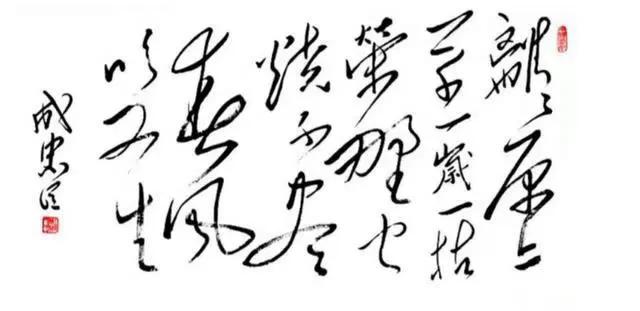 離離原上
草一歲一枯
榮野火
燒不盡
春風
吹又生
成忠臣